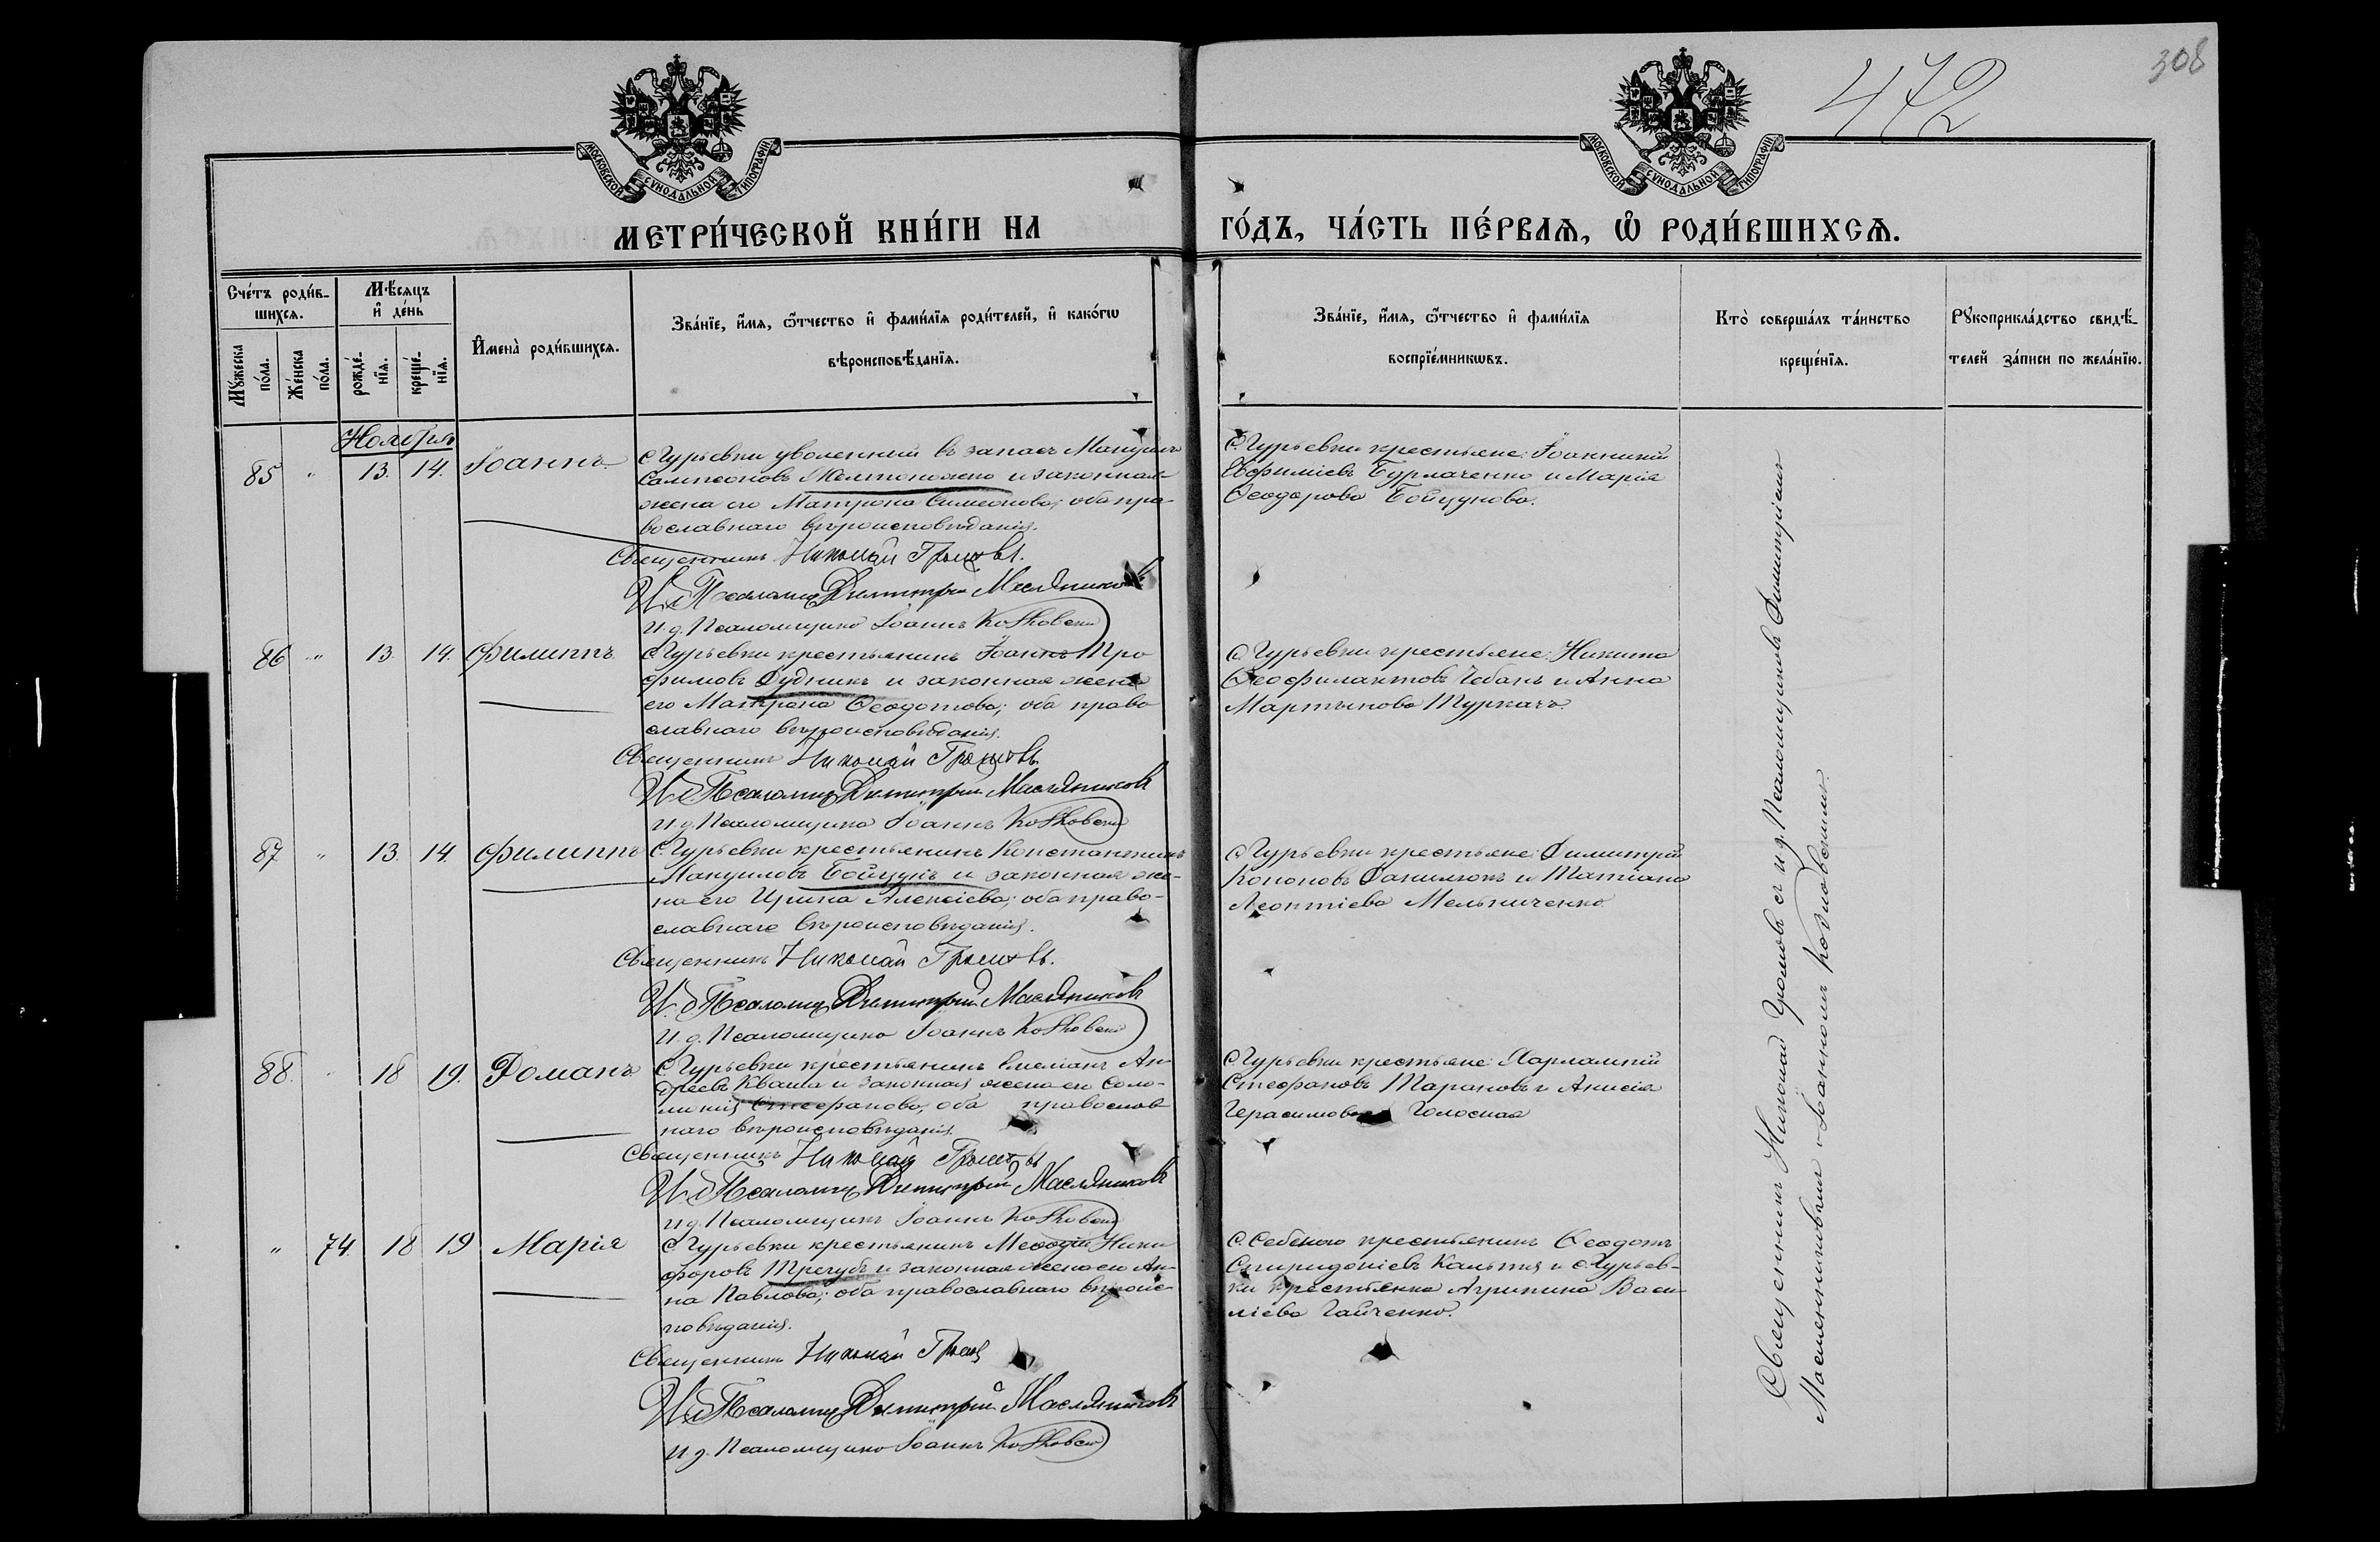 472
308
МОСКОВСКОЙ СѴНОДАЛЬНОЙ ТИПОГРАФІИ
МОСКОВСКОЙ СѴНОДАЛЬНОЙ ТИПОГРАФІИ
МЕТРИ́ЧЕСКОЙ КНИ́ГИ НА ГО́ДЪ, ЧА́СТЬ ПЕ́РВАѦ, Ѡ҆ РОДИ́ВШИХСѦ.
Сче́тъ роди́в-
шихсѧ.
Мꙋ́жеска по́ла.
Же́нска по́ла.
Мѣ́сѧцъ
и҆ де́нь
рожде́-
нїѧ.
креще́-
нїѧ.
И҆мена̀ роди́вшихсѧ.
Зва́нїе, и҆́мѧ, ѻ҆́тчество и҆ фами́лїѧ роди́телей, и҆ како́гѡ
вѣроисповѣ́данїѧ.
Зва́нїе, и҆́мѧ, ѻ҆́тчество и҆ фами́лїѧ
воспрїе́мникѡвъ.
Кто̀ соверша́лъ та́инство
креще́нїѧ.
Рꙋкоприкла́дство свидѣ́-
телей за́писи по жела́нїю.
Ноября
85 " 13. 14. Іоаннъ
С. Гурьевки уволенный въ запасъ Мануилъ
Сампсоновъ Желтоножко и законная
жена его Матрона Симеонова; оба пра-
вославнаго вѣроисповѣданія.
Священникъ Николай Громовъ.
И. д. Псаломщ. Димитрій Масляниковъ
И. д. Псаломщика Іоаннъ
С. Гурьевки крестьяне: Іоанникій
Евфиміевъ Бурлаченко и Марія
Ѳеодорова Бойцунова.
86 " 13. 14. Филиппъ
С. Гурьевки крестьянинъ Іоаннъ Тро-
фимовъ Дудникъ и законная жена
его Матрона Ѳеодотова; оба право-
славнаго вѣроисповѣданія.
Священникъ Николай Громовъ.
И. д. Псаломщ. Димитрій Масляниковъ
И. д. Псаломщика Іоаннъ
С. Гурьевки крестьяне: Никита
Ѳеофилактовъ Чебанъ и Анна
Мартынова Туркачъ.
87 " 13. 14. Филиппъ
С. Гурьевки крестьянинъ Константинъ
Мануиловъ Бойцунъ и законная же-
на его Ирина Алексіева; оба право-
славнаго вѣроисповѣданія.
Священникъ Николай Громовъ.
И. д. Псаломщ. Димитрій Масляниковъ
И. д. Псаломщика Іоаннъ
С. Гурьевки крестьяне: Димитрій
Кононовъ Данилюкъ и Татіана
Леонтіева Мельниченко.
88. " 18 19. Романъ
С. Гурьевки крестьянинъ Емеліанъ Ан-
дреевъ Кваша и законная жена его Соло-
монія Стефанова; оба православ-
наго вѣроисповѣданія.
Священникъ Николай Громовъ
И. д. Псаломщ. Димитрій Масляниковъ
И. д. Псаломщикъ Іоаннъ
С. Гурьевки крестьяне: Харлампій
Стефановъ Тарановъ и Анисія
Герасимова Голосная
" 74. 18 19 Марія
С. Гурьевки крестьянинъ Меѳодій Ники-
форовъ Трегубъ и законная жена его Ан-
на Павлова; оба православнаго вѣроис-
повѣданія.
Священникъ Николай
И. д. Псаломщ. Димитрій Масляниковъ
И. д. Псаломщика Іоаннъ
С. Себёнаго крестьянинъ Ѳеодотъ
Спиридоніевъ и с. Гурьев-
ки крестьянка Агрипина Васи-
ліева Гайченко.
Священникъ Николай Громовъ съ и. д. Псаломщиковъ Димитріемъ
Масленниковымъ и Іоанномъ